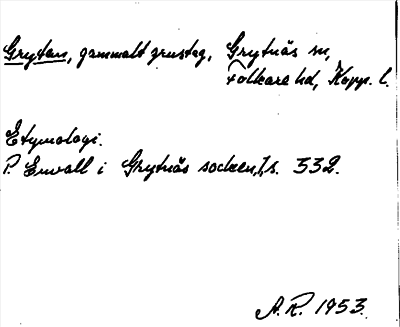 Grytan, gammalt grustag, Grytnäs sn,
Folkare hd, Kopp. l.
Etymologi.
P. Envall i Grytnäs socken, 1, s. 332.
A.R. 1953.